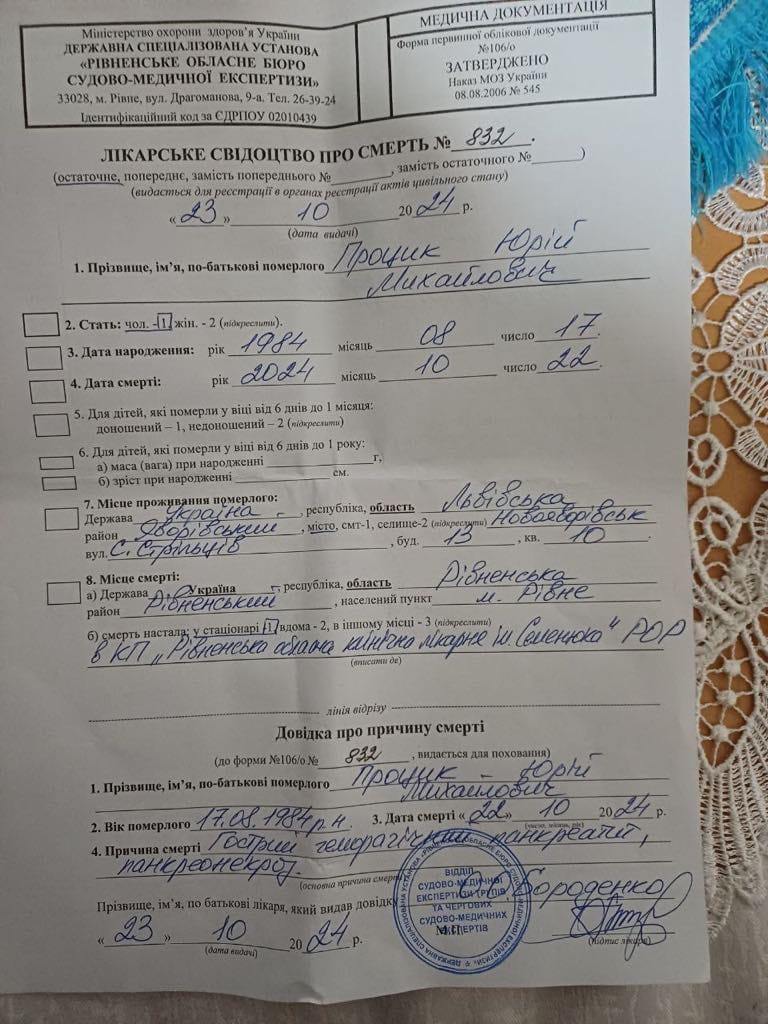 Міністерство охорони здоров'я України
ДЕРЖАВНА СПЕЦІАЛІЗОВАНА УСТАНОВА
«РІВНЕНСЬКЕ ОБЛАСНЕ БЮРО
СУДОВО-МЕДИЧНОЇ ЕКСПЕРТИЗИ»
33028, м. Рівне, вул. Драгоманова, 9-а. Тел. 26-39-24
Ідентифікаційний код за ЄДРПОУ 02010439
МЕДИЧНА ДОКУМЕНТАЦІЯ
Форма первинної облікової документації
№106/о
ЗАТВЕРДЖЕНО
Наказ МОЗ України
08.08.2006 № 545
ЛІКАРСЬКЕ СВІДОЦТВО ПРО СМЕРТЬ № 832.
(остаточне, попереднє, замість попереднього №________, замість остаточного №________)
(видається для реєстрації в органах реєстрації актів цивільного стану)
«23» 10 2024 р.
(дата видачі)
1. Прізвище, ім'я, по-батькові померлого Процик Юрій
Михайлович
2. Стать: чол. -1, жін. - 2 (підкреслити).
3. Дата народження: рік 1984 місяць 08 число 17.
4. Дата смерті: рік 2024 місяць 10 число 22.
5. Для дітей, які померли у віці від 6 днів до 1 місяця:
доношений – 1, недоношений – 2 (підкреслити)
6. Для дітей, які померли у віці від 6 днів до 1 року:
а) маса (вага) при народженні ________г,
б) зріст при народженні ________ см.
7. Місце проживання померлого:
Держава Україна -, республіка, область Львівська
район Яворівський, місто, смт-1, селище-2 (підкреслити) Новояворівськ
вул. С. Стрільців, буд. 13, кв. 10.
8. Місце смерті:
а) Держава Україна -, республіка, область Рівненська
район Рівненський, населений пункт м. Рівне
б) смерть настала: у стаціонарі -1, вдома - 2, в іншому місці - 3 (підкреслити),
в КП „Рівненська обласна клінічна лікарня ім. Семенюка" РОР
(вписати де)
лінія відрізу
Довідка про причину смерті
(до форми №106/о № 832, видається для поховання)
1. Прізвище, ім'я, по-батькові померлого Процик - Юрій
Михайлович
2. Вік померлого 17.08.1984 р.н. 3. Дата смерті «22» 10 2024 р.
(число, місяць, рік)
4. Причина смерті Гострий геморагічний панкреатит,
панкреонекроз.
(основна причина смерті)
Прізвище, ім'я, по батькові лікаря, який видав довідку Бороденко
ВІДДІЛ
СУДОВО-МЕДИЧНОЇ
ЕКСПЕРТИЗИ ТРУПІВ
ТА ЧЕРГОВИХ
СУДОВО-МЕДИЧНИХ
ЕКСПЕРТІВ
М.П.
«23» 10 2024 р.
(дата видачі)
(підпис лікаря)